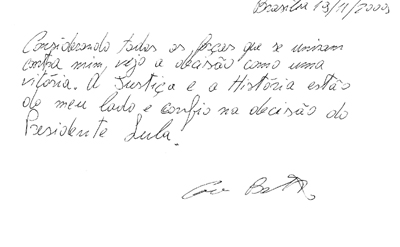 Brasília 19/11/2009
Considerando todas as forças que se uniram
contra mim, vejo a decisão como uma
vitória. A Justiça e a História estão
do meu lado e confio na decisão do
Presidente Lula!